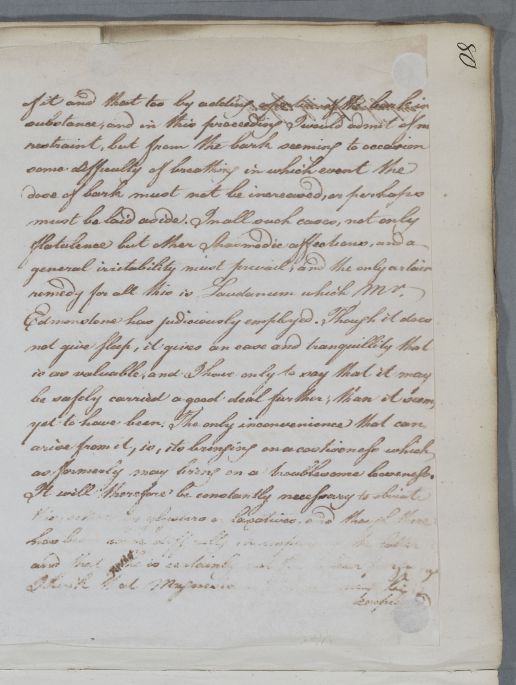 80
of it and that too by adding a portion of the bark in
substance, and in this proceeding I would admit of n
restraint, but from the bark seeming to occasion
some difficulty of breathing in which event the
dose of bark must not be increased, or perhaps
must be laid aside. In all such cases, not only
flatulence but other Spasmodic affections, and a
general irritability must prevail, and the only certain
remedy for all this is Laudanum which Mr.
Edmonstone has judiciously employed. Though it does
not give sleep, it gives an ease and tranquillity that
is as valuable, and I have only to say that it may
be safely carried a good deal farther, than it seems
yet to have been. The only inconvenience that can
arise from it, is, its bringing on a costiveness which
as formerly may bring on a troublesome looseness.
It will therefore be constantly necessary to obviate
this, either by glysters or laxatives, and though there
have been some difficulty
and that is certainly
I think that Magnesia